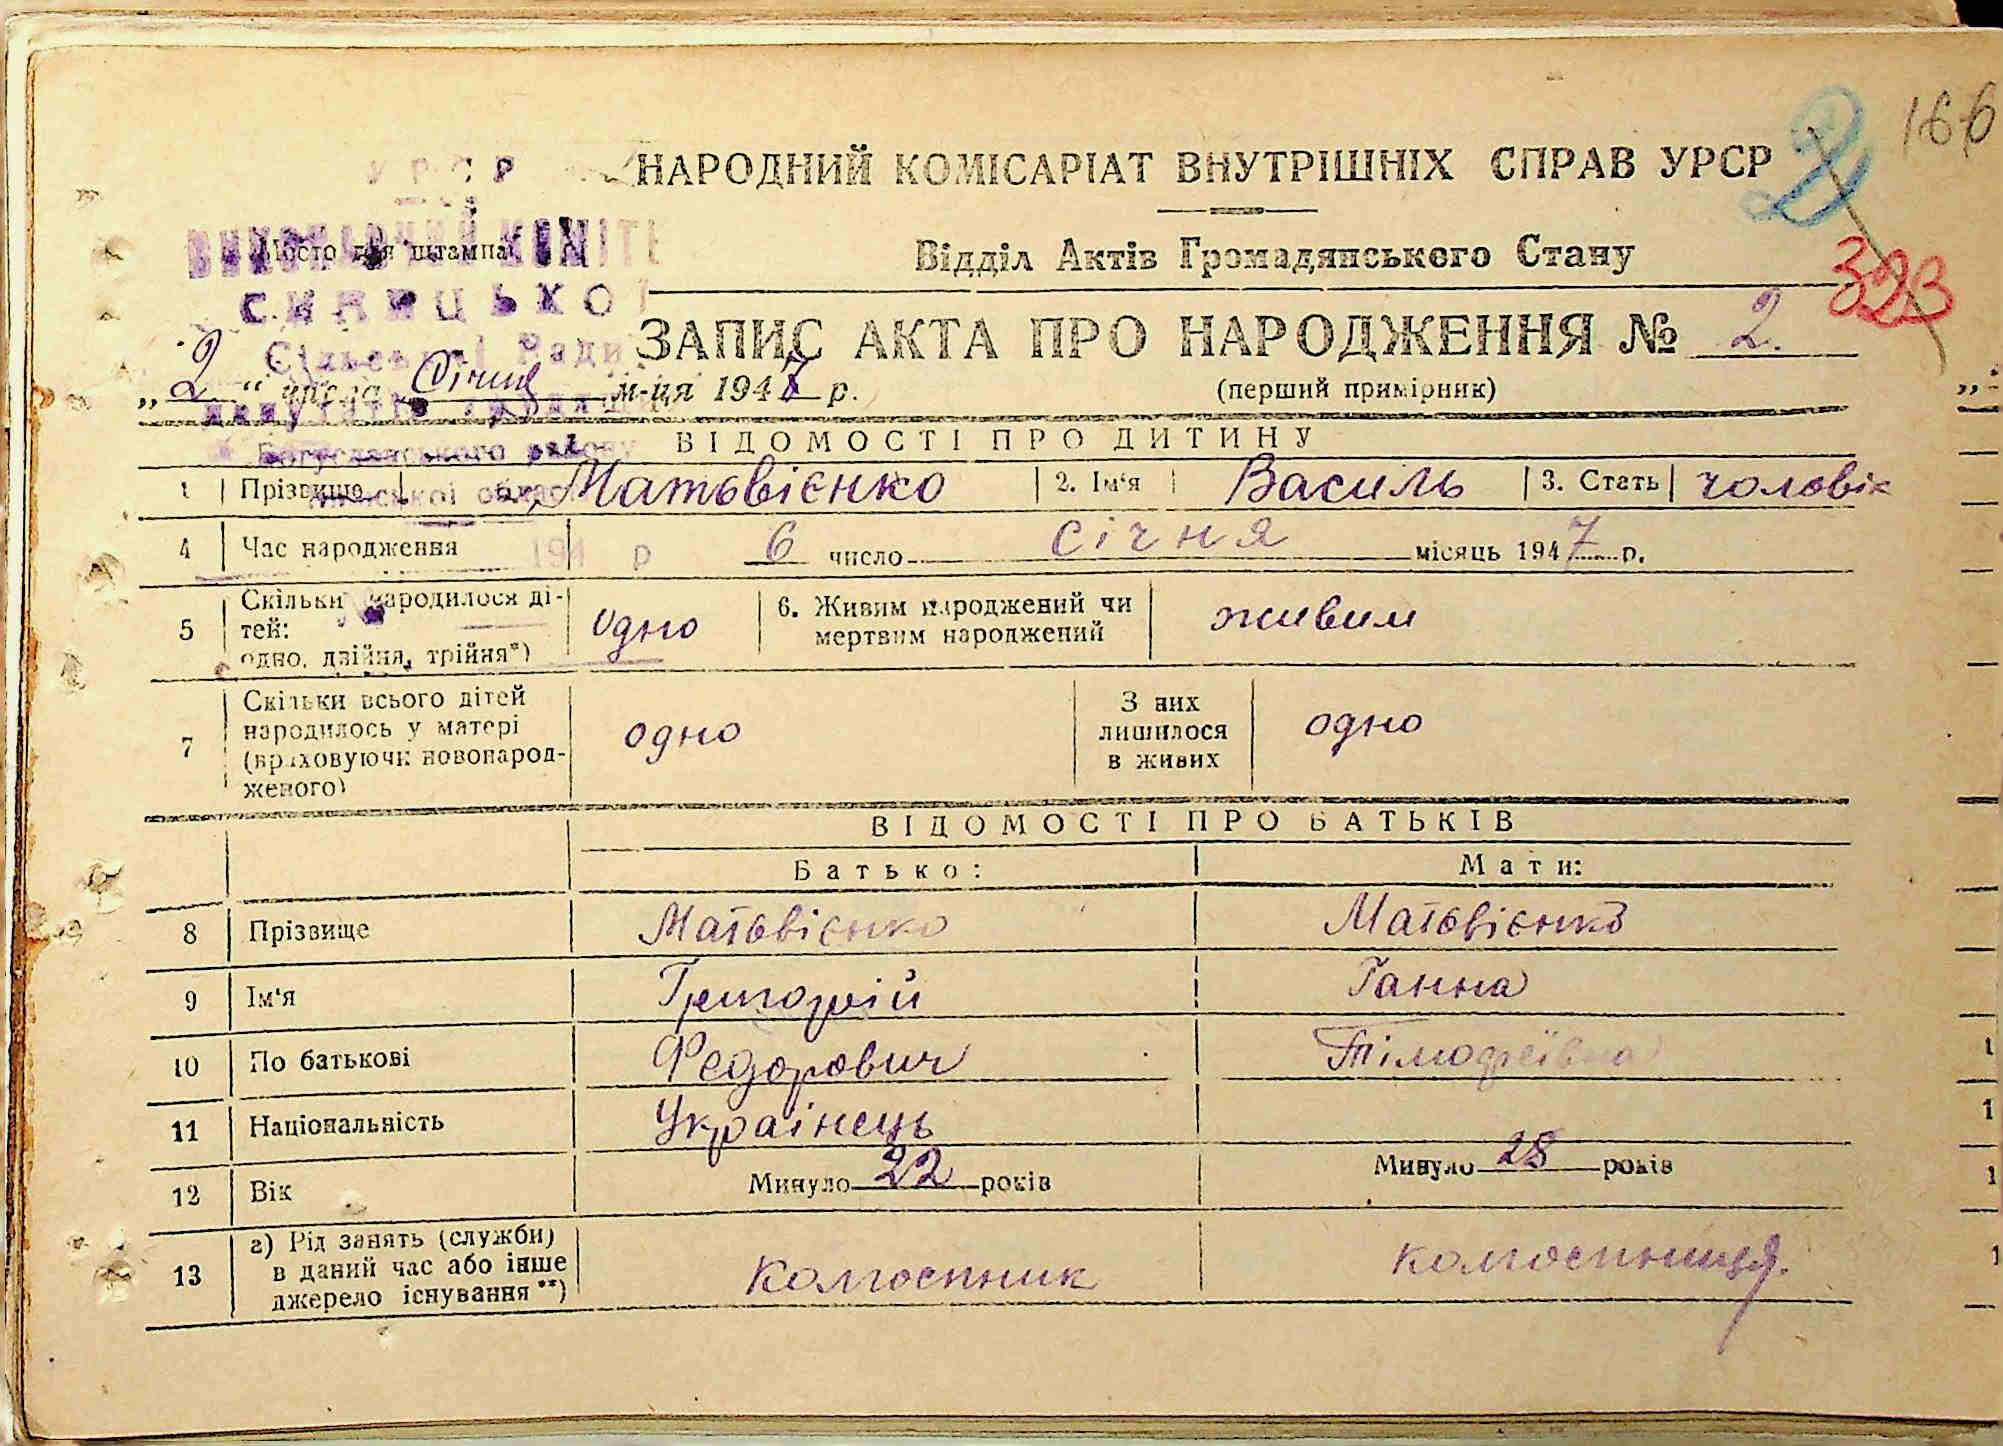 166
2
323
УРСР
НАРОДНИЙ КОМІСАРІАТ ВНУТРІШНІХ СПРАВ УРСР
Місце для штампа
ВИКОНАВЧИЙ КОМІТЕ
Відділ Актів Громадянського Стану
СИНИЦЬКОЇ
Сільської Ради
ЗАПИС АКТА ПРО НАРОДЖЕННЯ № 2.
„2“ числа Січня м-ця 1947 р.
(перший примірник)
депутатів трудящ
Богуславського району
ВІДОМОСТІ ПРО ДИТИНУ
1 Прізвище Матьвієнко 2. Ім‘я Василь 3. Стать чоловік
Київської облас
4 Час народження 6 число січня місяць 1947 р.
194 р
5 Скільки народилося ді-
тей:
одно, двійня, трійня*)
одно
6. Живим народжений чи
мертвим народжений
живим
7 Скільки всього дітей
народилось у матері
(враховуючи новонарод-
женого)
одно
З них
лишилося
в живих
одно
ВІДОМОСТІ ПРО БАТЬКІВ
Батько: Мати:
8 Прізвище Матьвієнко Матьвієнко
9 Ім‘я Григорій Ганна
10 По батькові Федорович Тімофіївна
11 Національність Українець
12 Вік Минуло 22 років Минуло 28 років
13 а) Рід занять (служби)
в даний час або інше
джерело існування**)
колгоспник колгоспниця.